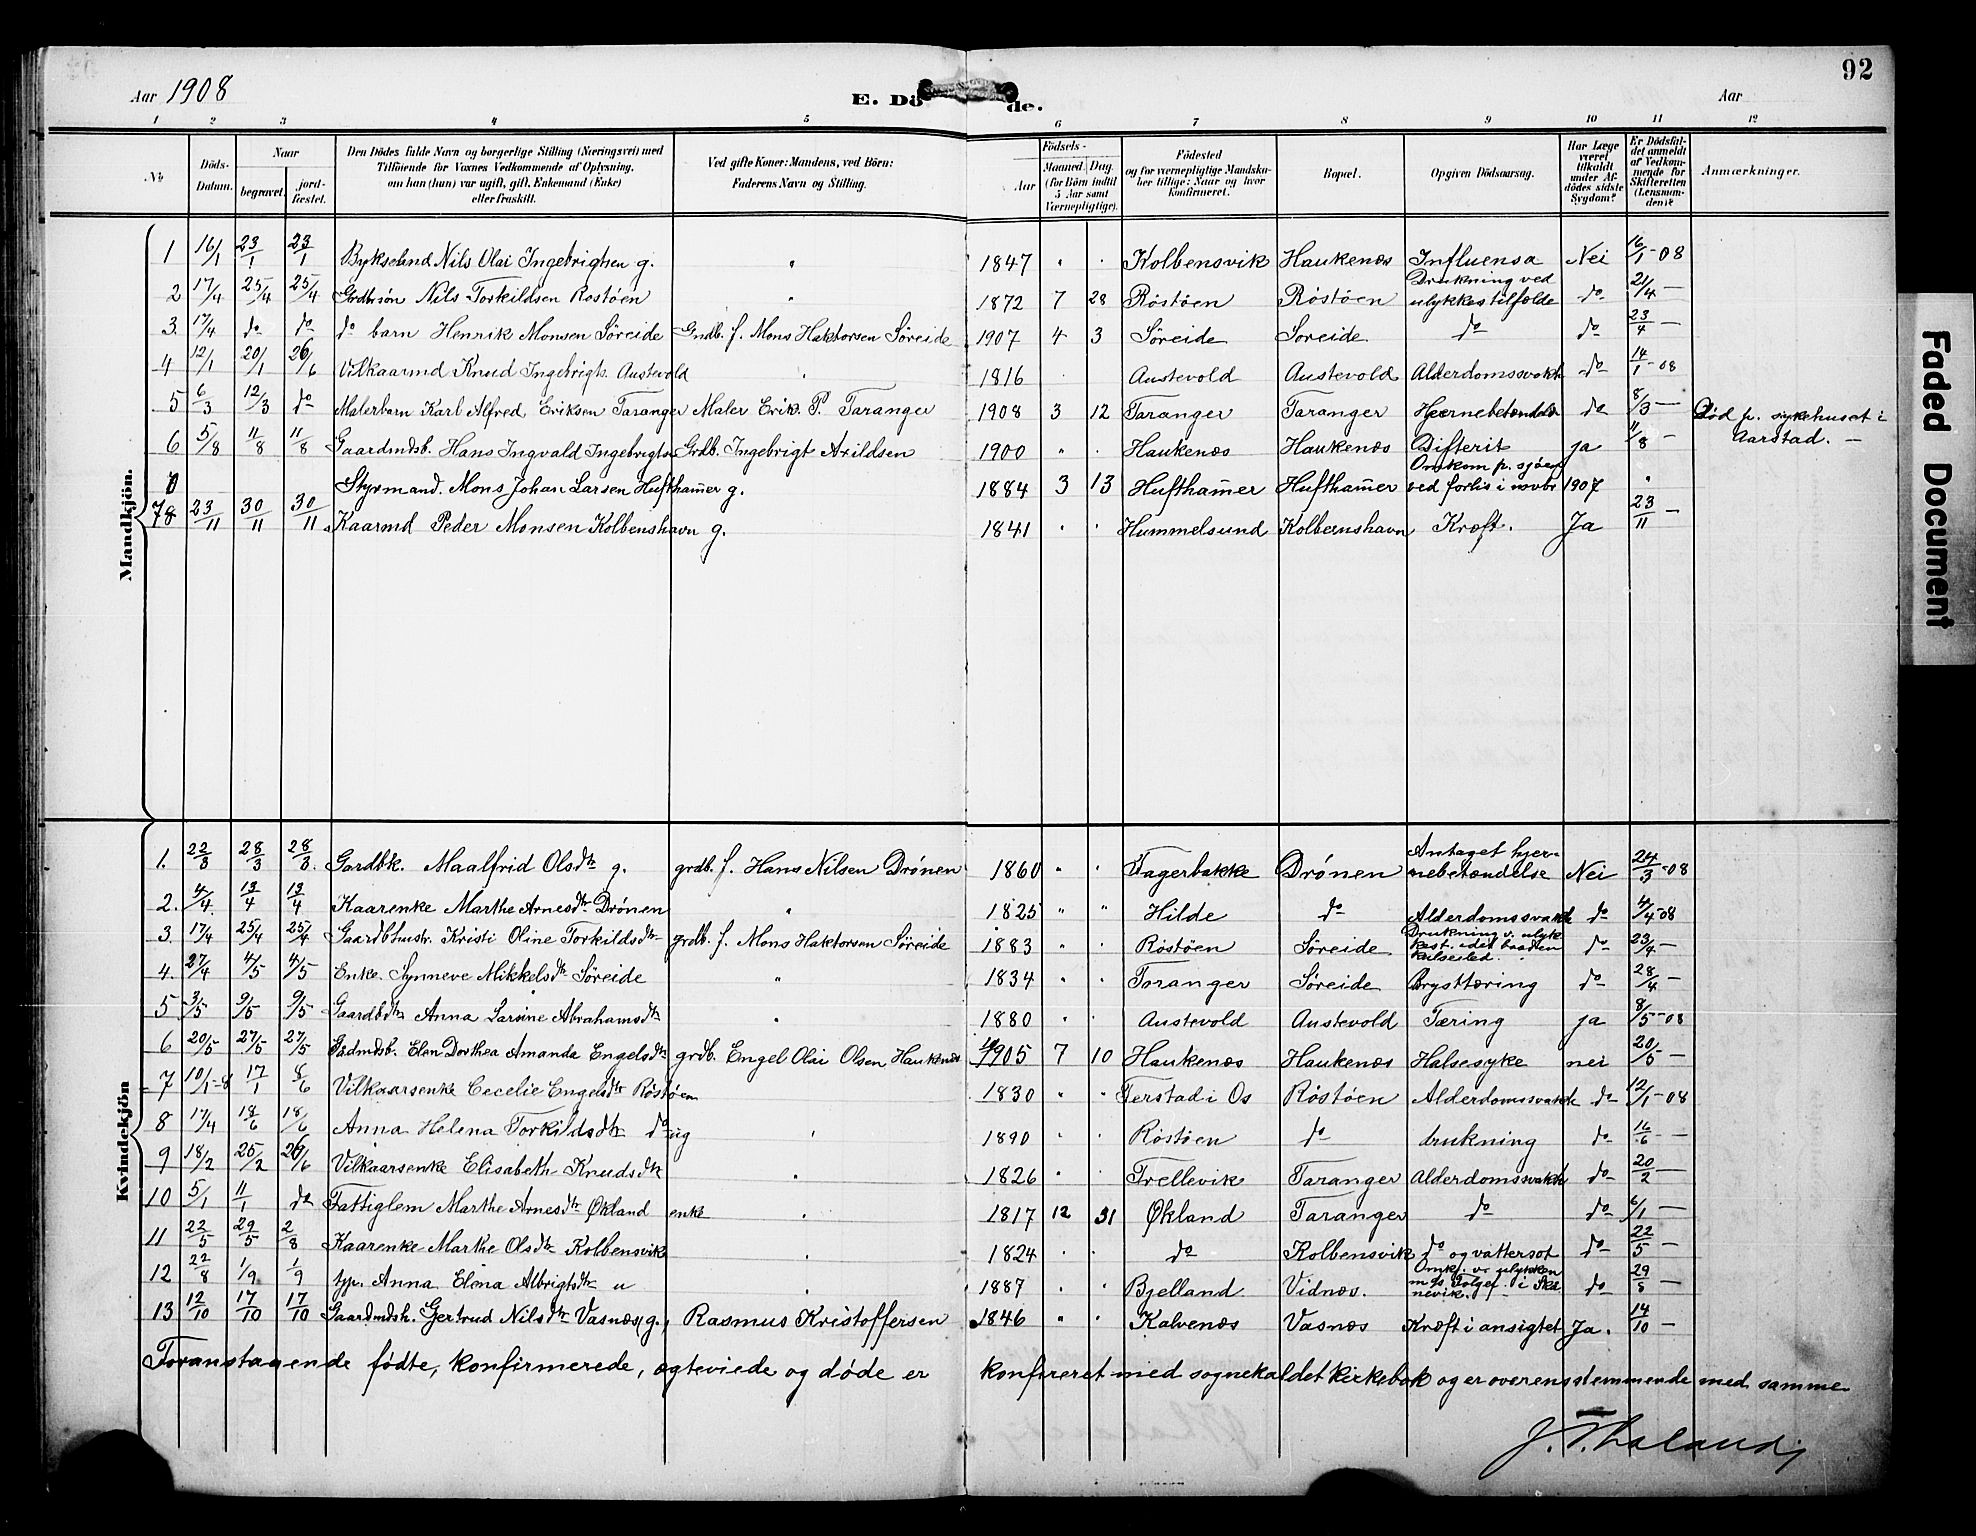 92
Aar 1908 E. Dö de. Aar
1 2 3 4 5 6 7 8 9 10 11 12
№ Döds-Datum. Naar begravet. jord-fæstet. Den Dödes fulde Navn og borgerlige Stilling (Næringsvei) med Tilföiende for Voxnes Vedkommende af Oplysning, om han (hun) var ugift, gift, Enkemand (Enke) eller fraskilt. Ved gifte Koner: Mandens, ved Börn: Faderens Navn og Stilling. Födsels- Aar Maaned. Dag. (for Börn indtil 5 Aar samt Værnepligtige). Födested og for værnepligtige Mandskaber tillige: Naar og hvor konfirmeret. Bopæl. Opgiven Dödsaarsag. Har Læge været tilkaldt under Afdödes sidste Sygdom? Er Dödsfaldet anmeldt af Vedkommende for Skifteretten (Lensmanden)? Anmærkninger.
Mandkjön.
1 16/1 23/1 23/1 Bykseland Nils Olai Ingebrigtsen g. " 1847 " " Kolbensvik Haukenæs Influensa Nei 16/1-08
2 17/4 25/4 25/4 Gardbrsön Nils Torkildsen Rostöen " 1872 7 28 Röstöen Röstöen Drukning ved ulykkestilfælde do 21/4 —
3. 17/4 do do do barn Henrik Monsen Söreide Gndb. f. Mons Haktorsen Söreide 1907 4 3 Söreide Soreide do do 23/4 —
4 12/1 20/1 26/6 Vilkaarmd Knud Ingebrigts. Austevold 1816 Austevold Austevold Alderdomssvakh do 14/1-08
5 6/3 12/3 do Malerbarn Karl Alfred Eriksen Taranger Maler Erik P. Taranger 1908 3 12 Taranger Taranger Hjernebetændels do 8/3 — Död p. sykehuset i Aarstad. —
6 5/8 11/8 11/8 Gaardmdsb. Hans Ingvald Ingebrigtsn Grdb. Ingebrigt Arildsen 1900 " " Haukenæs Haukenæs Difterit ja 11/8 —
7 Styrmand. Mons Johan Larsen Hufthamer g. 1884 3 13 Hufthamer Hufthamer Omkom p. sjöen ved forlis i novbr 1907 "
8 23/11 30/11 30/11 Kaarmd Peder Monsen Kolbenshavn g. 1841 " " Hummelsund Kolbenshavn Kræft. Ja 23/11 —
Kvindekjön
1. 22/3 28/3 28/3. Gardbk. Maalfrid Olsdtr g. grdb. f. Hans Nilsen Drönen 1860 " " Fagerbakke Drönen Antaget hjernebetændelse Nei 24/3-08
2. 4/4. 13/4 13/4 Kaarenke Marthe Arnesdtr Drönen " 1825 " " Hilde do Alderdomssvakh do 4/4-08
3. 17/4 25/4 25/4 Gaardbhustr. Kristi Oline Torkildsdtr grdb. f. Mons Haktorsen Söreide 1883 " " Röstöen Söreide Drukning v. ulyk kest. idet baaden do 23/4 —
4. 27/4 4/5 4/5 Enke. Synneve Mikkelsdtr Söreide " 1834 " " Toranger Söreide Brysttæring do 28/4 —
5 3/5 9/5 9/5 Gaardbdtr Anna Larsine Abrahamsdtr " 1880 " " Austevold Austevold Tæring ja 8/5-08
6 20/5 27/5 27/5 Gdmdsb. Elen Dorthea Amanda Engelsdtr grdb. Engel Olai Olsen Haukenæs 1905 7 10 Haukenæs Haukenæs Halsesyke nei 20/5 —
7 10/1-8 17/1 8/6 Vilkaarsenke Cecelie Engelsdtr Röstöen 1830 " " Ferstad i Os Röstöen Alderdomssvakh do 12/1-08
8 17/4 18/6 18/6 Anna Helena Torkildsdtr do ug " 1890 " " Röstöen do drukning do 16/6 —
9 18/2 25/2 26/6 Vilkaarsenke Elisabeth Knudsdtr " 1826 " " Trellevik Taranger Alderdomssvakh do 20/2 —
10 5/1 11/1 do Fattiglem Marthe Arnesdtr Økland enke " 1817 12 31 Økland Taranger do do 6/1 —
11 22/5 29/5 2/8 Kaarenke Marthe Olsdtr Kolbensvik " 1824 " " do Kolbensvik do og vattersot do 22/5 —
12 22/8 1/9 1/9 tjp. Anna Elena Albrigtsdtr u " 1887 " " Bjelland Vidnæs. Omk. v. ulykken m ds. Folgef. i Skånevik. do 29/8 —
13 12/10 17/10 17/10 Gaardmdsh. Gertrud Nilsdtr Vasnæs g., Rasmus Kristoffersen 1846 " " Kalvenæs Vasnæs Kræft i ansigtet Ja. 14/10 —
Foranstaaende födte, konfirmerede, ægteviede og döde er konfireret med sognekaldet kirkebok og er overensstemmende med samme